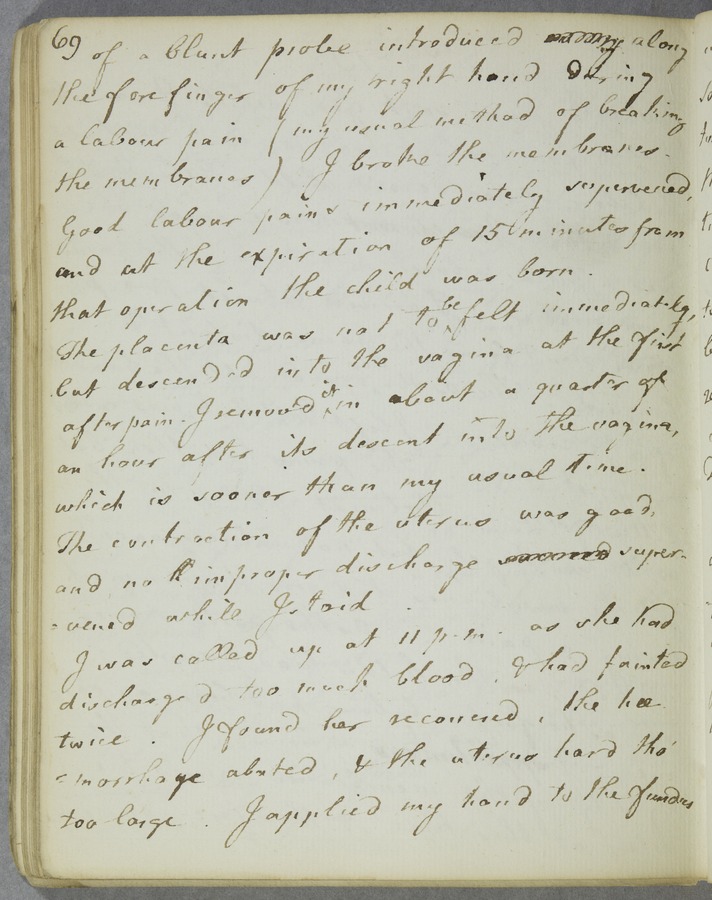 69
of a blunt probe introduced along
the forefinger of my right hand during
a labour pain (my usual method of breaking
the membranes) I broke the membranes.
Good labour pains immediately supervened,
and at the expiration of 15 minutes from
that operation the child was born.
The placenta was not to be felt immediately,
but descended into the vagina at the first
after pain. I removed it in about a quarter of
an hour after its descent into the vagina,
which is sooner than my usual time.
The contraction of the uterus was good,
and no improper discharge super-
=vened while I staid.
I was called up at 11 p.m. as she had
discharged too much blood, & had fainted
twice. I found her recovered, the hæ
=morrhage abated, & the uterus hard tho'
too large. I applied my hand to the fundus